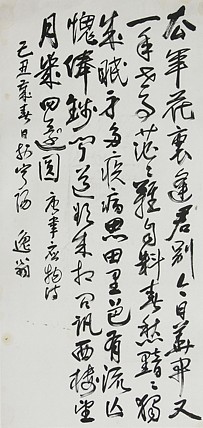 去年花裏逢君別今日花開又
一年世事茫茫難自料春愁黯黯獨
成眠身多疾病思田里邑有流亡
愧俸錢聞道欲來相問訊西樓望
月幾回圓 唐韋應物詩
己丑歲春日於 逸翁